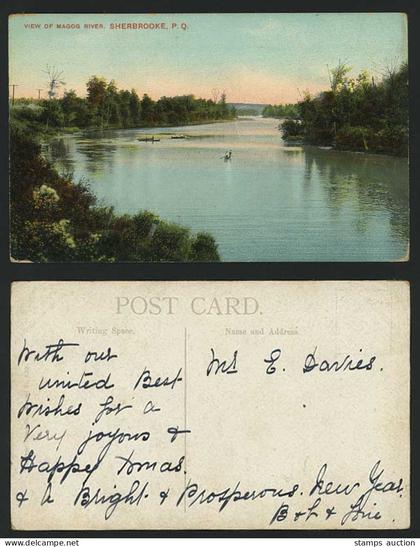 VIEW OF MAGOG RIVER. SHERBROOKE, P.Q.
POST CARD.
Writing Space.
Name and Address.
With our
united Best
Wishes for a
Very joyous &
Happy Xmas.
& A Bright & Prosperous. New Year.
Mr E. Davies.
stamps auction